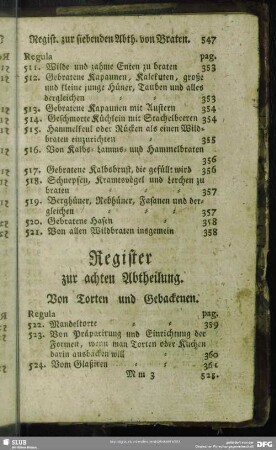 Regist. zur siebenden Abth. von Braten. 547
Regula pag.
511. Wilde und zahme Enten zu braten 353
512. Gebratene Kapaunen, Kalekuten, große
und kleine junge Hüner, Tauben und alles
dergleichen 353
513. Gebratene Kapaunen mit Austern 354
514. Geschmorte Küchlein mit Stachelbeeren 354
515. Hammelkeul oder Rücken als einen Wild-
braten einzurichten 355
516. Von Kalbs- Lamms- und Hammelbraten
356
517. Gebratene Kalbsbrust, die gefüllt wird 356
518. Schnepfen, Krametsvögel und Lerchen zu
braten 357
519. Berghüner, Rebhüner, Fasanen und der-
gleichen 357
520. Gebratene Hasen 358
521. Von allen Wildbraten insgemein 358
Register
zur achten Abtheilung.
Von Torten und Gebackenen.
Regula pag.
522. Mandeltorte 359
523. Von Präparirung und Einrichtung der
Formen, wenn man Torten oder Kuchen
darin ausbacken will 360
524. Vom Glaßiren 361
M m 3 525.
SLUB
DFG